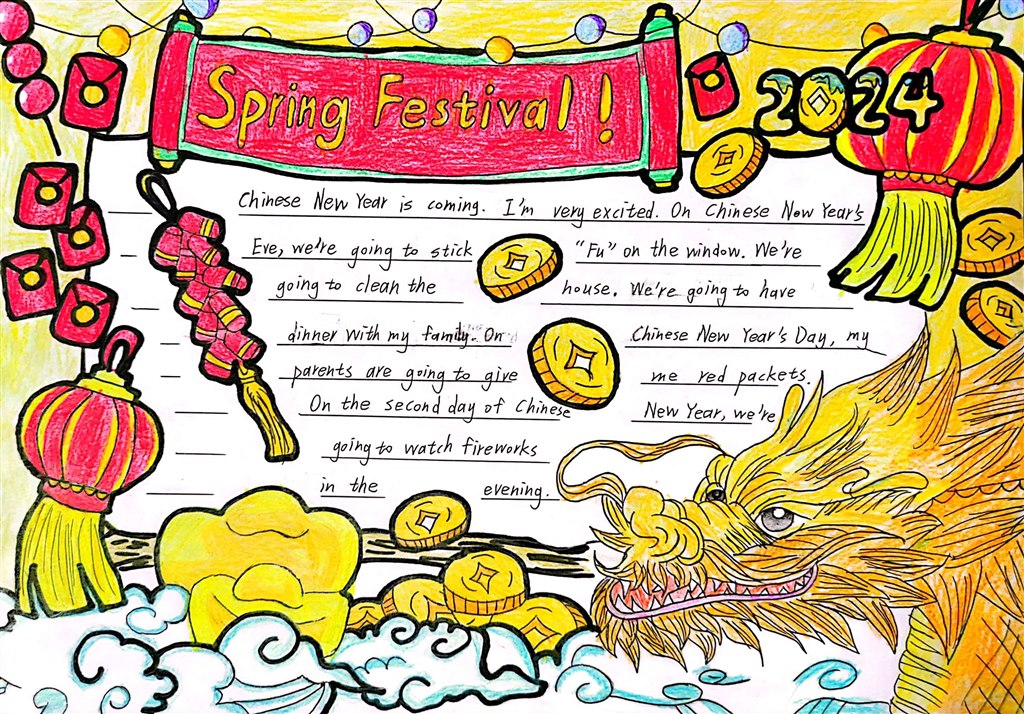 Spring Festival!
2024
Chinese New Year is coming. I'm very excited. On Chinese New Year's
Eve, we're going to stick "Fu" on the window. We're
going to clean the house. We're going to have
dinner with my family. On Chinese New Year's Day, my
parents are going to give me red packets.
On the second day of Chinese New Year, we're
going to watch fireworks
in the evening.